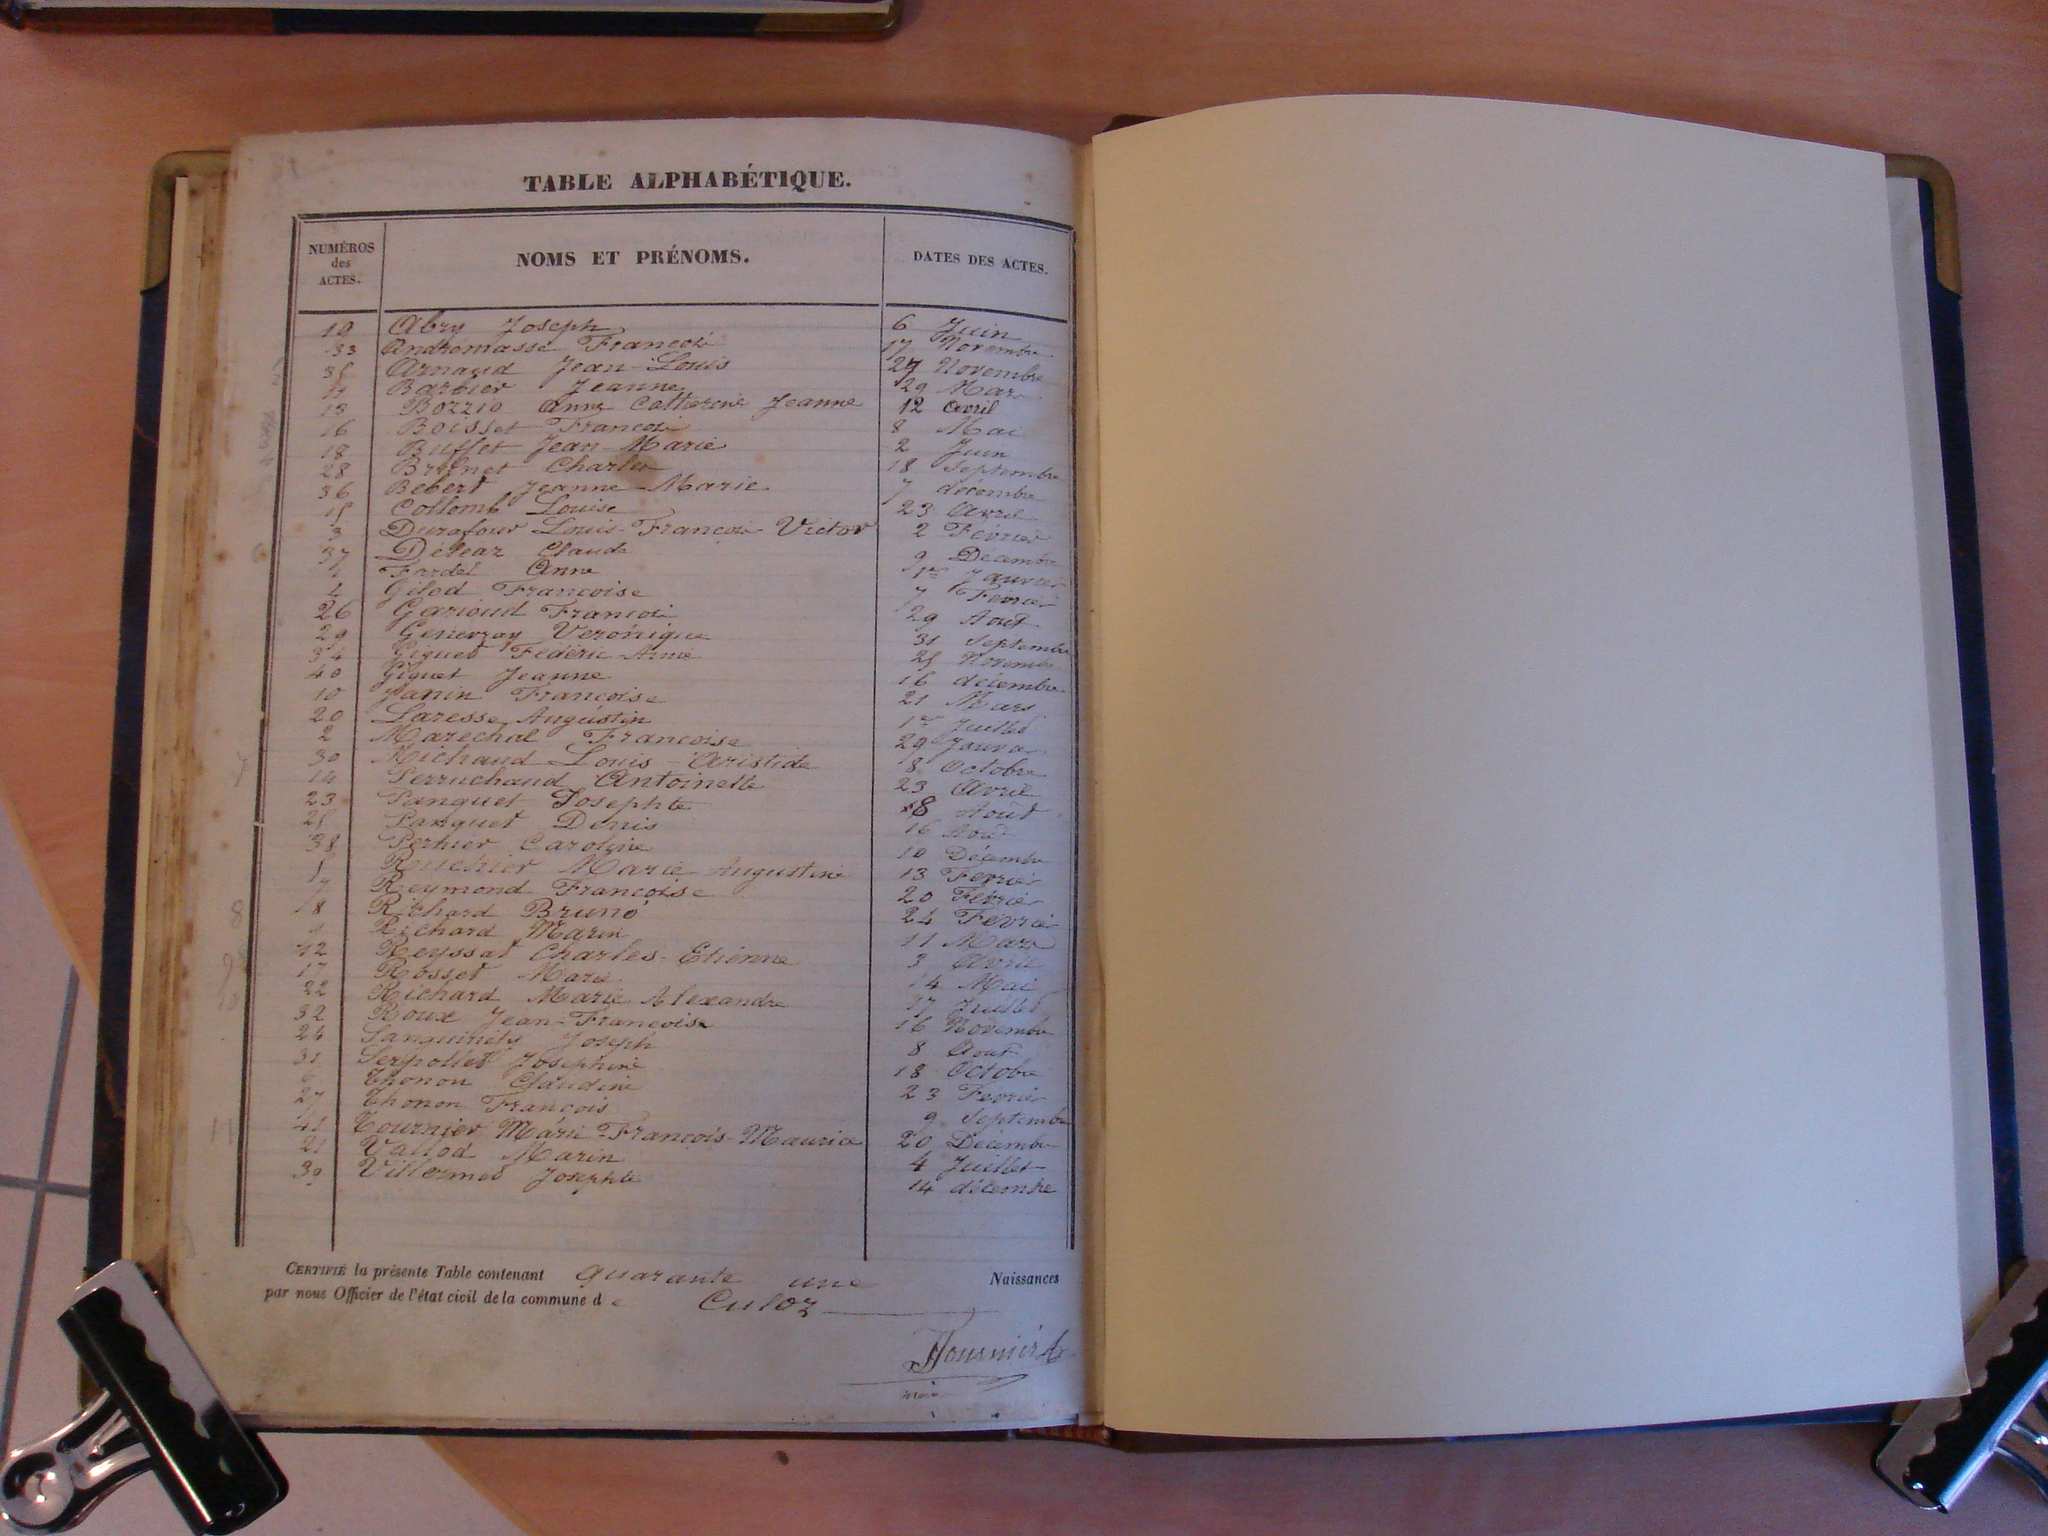 TABLE ALPHABÉTIQUE.
NUMÉROS des ACTES. NOMS ET PRÉNOMS. DATES DES ACTES.
19 Abry Joseph 6 Juin
33 Andromasse Francois 17 Novembre
35 Arnaud Jean-Louis 27 Novembre
11 Barbier Jeanne 29 Mars
13 Bozzio Anne Catherine Jeanne 12 Avril
16 Boisset Francois 8 Mai
18 Buffet Jean-Marie 2 Juin
28 Brunet Charles 18 Septembre
36 Bebert Jeanne-Marie 7 décembre
15 Collomb Louise 23 Avril
3 Durafour Louis-François-Victor 2 Février
37 Déléaz Claude 9 Décembre
1 Fardel Anne 1er Janvier
4 Gilod Francoise 7 Février
26 Garioud Francois 29 Aout
29 Genevray Veronique 31 Septembre
34 Giguet Fédéric Aimé 25 Novembre
40 Giguet Jeanne 16 décembre
10 Janin Francoise 21 Mars
20 Laresse Augustin 1er Juillet
2 Marechal Francoise 29 Janvier
30 Michaud Louis-Aristide 8 Octobre
14 Perruchaud Antoinette 23 Avril
23 Panguet Josephte 8 Août
25 Panguet Denis 16 Août
38 Perrier Caroline 10 Décembre
5 Rouchier Marie-Augustine 13 Fevrier
7 Reymond Francoise 20 Fevrier
8 Richard Bruno 24 Fevrier
Richard Marin 11 Mars
12 Reyssat Charles-Etienne 3 Avril
17 Rosset Marie 14 Mai
22 Richard Marie Alexandre 17 Juillet
32 Roux Jean-Francoise 16 Novembre
24 Joseph 8 Aout
31 Serpollet Josephine 18 Octobre
6 Thonon Claudine 23 Fevrier
27 Thonon François 9 Septembre
41 Tournier Marie-François-Maurice 20 Décembre
21 Vallod Marin 4 Juillet
39 Villermet Josephte 14 décembre
CERTIFIÉ la présente Table contenant quarante une Naissances
par nous Officier de l'état civil de la commune de Culoz